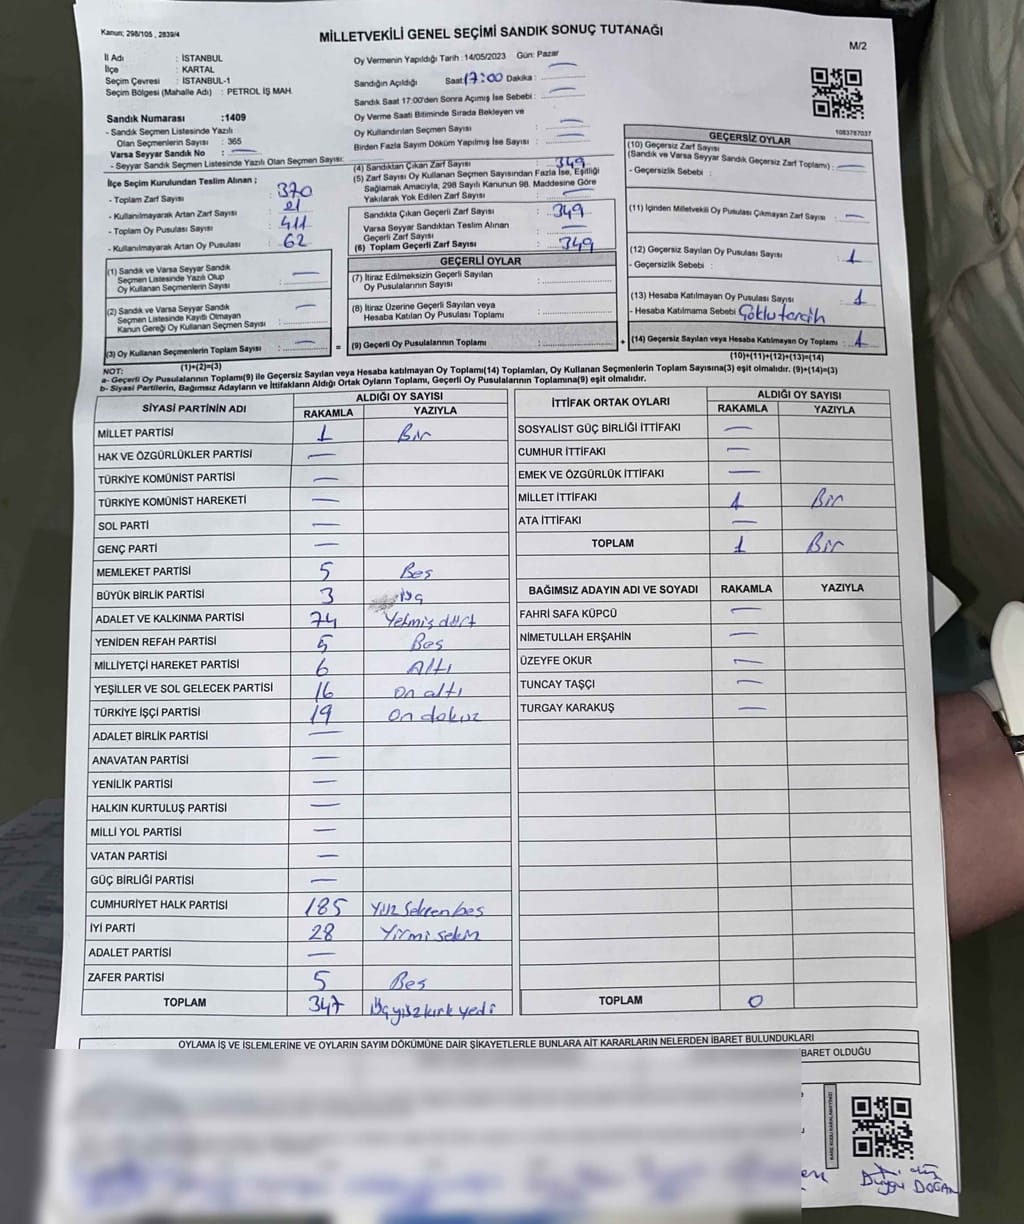 Kanun; 298/105 , 2839/4
MİLLETVEKİLİ GENEL SEÇİMİ SANDIK SONUÇ TUTANAĞI
M/2
İl Adı : İSTANBUL
İlçe : KARTAL
Seçim Çevresi : İSTANBUL-1
Seçim Bölgesi (Mahalle Adı) : PETROL İŞ MAH.
Sandık Numarası :1409
- Sandık Seçmen Listesinde Yazılı
Olan Seçmenlerin Sayısı : 365
Varsa Seyyar Sandık No : —
- Seyyar Sandık Seçmen Listesinde Yazılı Olan Seçmen Sayısı:
Oy Vermenin Yapıldığı Tarih :14/05/2023 Gün: Pazar
Sandığın Açıldığı Saat 17:00 Dakika : —
Sandık Saat 17:00'den Sonra Açımış İse Sebebi : —
Oy Verme Saati Bitiminde Sırada Bekleyen ve
Oy Kullandırılan Seçmen Sayısı : —
Birden Fazla Sayım Döküm Yapılmış İse Sayısı : —
1083787037
İlçe Seçim Kurulundan Teslim Alınan ;
- Toplam Zarf Sayısı : 370
- Kullanılmayarak Artan Zarf Sayısı : 21
- Toplam Oy Pusulası Sayısı : 411
- Kullanılmayarak Artan Oy Pusulası : 62
(1) Sandık ve Varsa Seyyar Sandık
Seçmen Listesinde Yazılı Olup
Oy Kullanan Seçmenlerin Sayısı : —
(2) Sandık ve Varsa Seyyar Sandık
Seçmen Listesinde Kayıtlı Olmayan
Kanun Gereği Oy Kullanan Seçmen Sayısı : —
(3) Oy Kullanan Seçmenlerin Toplam Sayısı : —
(1)+(2)=(3)
(4) Sandıktan Çıkan Zarf Sayısı : 349
(5) Zarf Sayısı Oy Kullanan Seçmen Sayısından Fazla İse, Eşitliği
Sağlamak Amacıyla, 298 Sayılı Kanunun 98. Maddesine Göre
Yakılarak Yok Edilen Zarf Sayısı : —
Sandıkta Çıkan Geçerli Zarf Sayısı : 349
Varsa Seyyar Sandıktan Teslim Alınan
Geçerli Zarf Sayısı : —
(6) Toplam Geçerli Zarf Sayısı : 349
GEÇERLİ OYLAR
(7) İtiraz Edilmeksizin Geçerli Sayılan
Oy Pusulalarının Sayısı :
(8) İtiraz Üzerine Geçerli Sayılan veya
Hesaba Katılan Oy Pusulası Toplamı :
= (9) Geçerli Oy Pusulalarının Toplamı : +
GEÇERSİZ OYLAR
(10) Geçersiz Zarf Sayısı
(Sandık ve Varsa Seyyar Sandık Geçersiz Zarf Toplamı) : —
- Geçersizlik Sebebi :
(11) İçinden Milletvekili Oy Pusulası Çıkmayan Zarf Sayısı : —
(12) Geçersiz Sayılan Oy Pusulası Sayısı : 1
- Geçersizlik Sebebi :
(13) Hesaba Katılmayan Oy Pusulası Sayısı : 1
- Hesaba Katılmama Sebebi : Çoklu tercih
(14) Geçersiz Sayılan veya Hesaba Katılmayan Oy Toplamı : 1
(10)+(11)+(12)+(13)=(14)
NOT:
a- Geçerli Oy Pusulalarının Toplamı(9) ile Geçersiz Sayılan veya Hesaba katılmayan Oy Toplamı(14) Toplamları, Oy Kullanan Seçmenlerin Toplam Sayısına(3) eşit olmalıdır. (9)+(14)=(3)
b- Siyasi Partilerin, Bağımsız Adayların ve İttifakların Aldığı Ortak Oyların Toplamı, Geçerli Oy Pusulalarının Toplamına(9) eşit olmalıdır.
SİYASİ PARTİNİN ADI ALDIĞI OY SAYISI
RAKAMLA YAZIYLA
MİLLET PARTİSİ 1 Bir
HAK VE ÖZGÜRLÜKLER PARTİSİ —
TÜRKİYE KOMÜNİST PARTİSİ —
TÜRKİYE KOMÜNİST HAREKETİ —
SOL PARTİ —
GENÇ PARTİ —
MEMLEKET PARTİSİ 5 Beş
BÜYÜK BİRLİK PARTİSİ 3 Üç
ADALET VE KALKINMA PARTİSİ 74 Yetmiş dört
YENİDEN REFAH PARTİSİ 5 Beş
MİLLİYETÇİ HAREKET PARTİSİ 6 Altı
YEŞİLLER VE SOL GELECEK PARTİSİ 16 On altı
TÜRKİYE İŞÇİ PARTİSİ 19 On dokuz
ADALET BİRLİK PARTİSİ —
ANAVATAN PARTİSİ —
YENİLİK PARTİSİ —
HALKIN KURTULUŞ PARTİSİ —
MİLLİ YOL PARTİSİ —
VATAN PARTİSİ —
GÜÇ BİRLİĞİ PARTİSİ —
CUMHURİYET HALK PARTİSİ 185 Yüz Seksen beş
İYİ PARTİ 28 Yirmi sekiz
ADALET PARTİSİ —
ZAFER PARTİSİ 5 Beş
TOPLAM 347 Üç yüz kırk yedi
İTTİFAK ORTAK OYLARI ALDIĞI OY SAYISI
RAKAMLA YAZIYLA
SOSYALİST GÜÇ BİRLİĞİ İTTİFAKI —
CUMHUR İTTİFAKI —
EMEK VE ÖZGÜRLÜK İTTİFAKI —
MİLLET İTTİFAKI 1 Bir
ATA İTTİFAKI —
TOPLAM 1 Bir
BAĞIMSIZ ADAYIN ADI VE SOYADI RAKAMLA YAZIYLA
FAHRİ SAFA KÜPCÜ —
NİMETULLAH ERŞAHİN —
ÜZEYFE OKUR —
TUNCAY TAŞÇI —
TURGAY KARAKUŞ —
TOPLAM 0
OYLAMA İŞ VE İŞLEMLERİNE VE OYLARIN SAYIM DÖKÜMÜNE DAİR ŞİKAYETLERLE BUNLARA AİT KARARLARIN NELERDEN İBARET BULUNDUKLARI
BARET OLDUĞU
Duygu DOĞAN